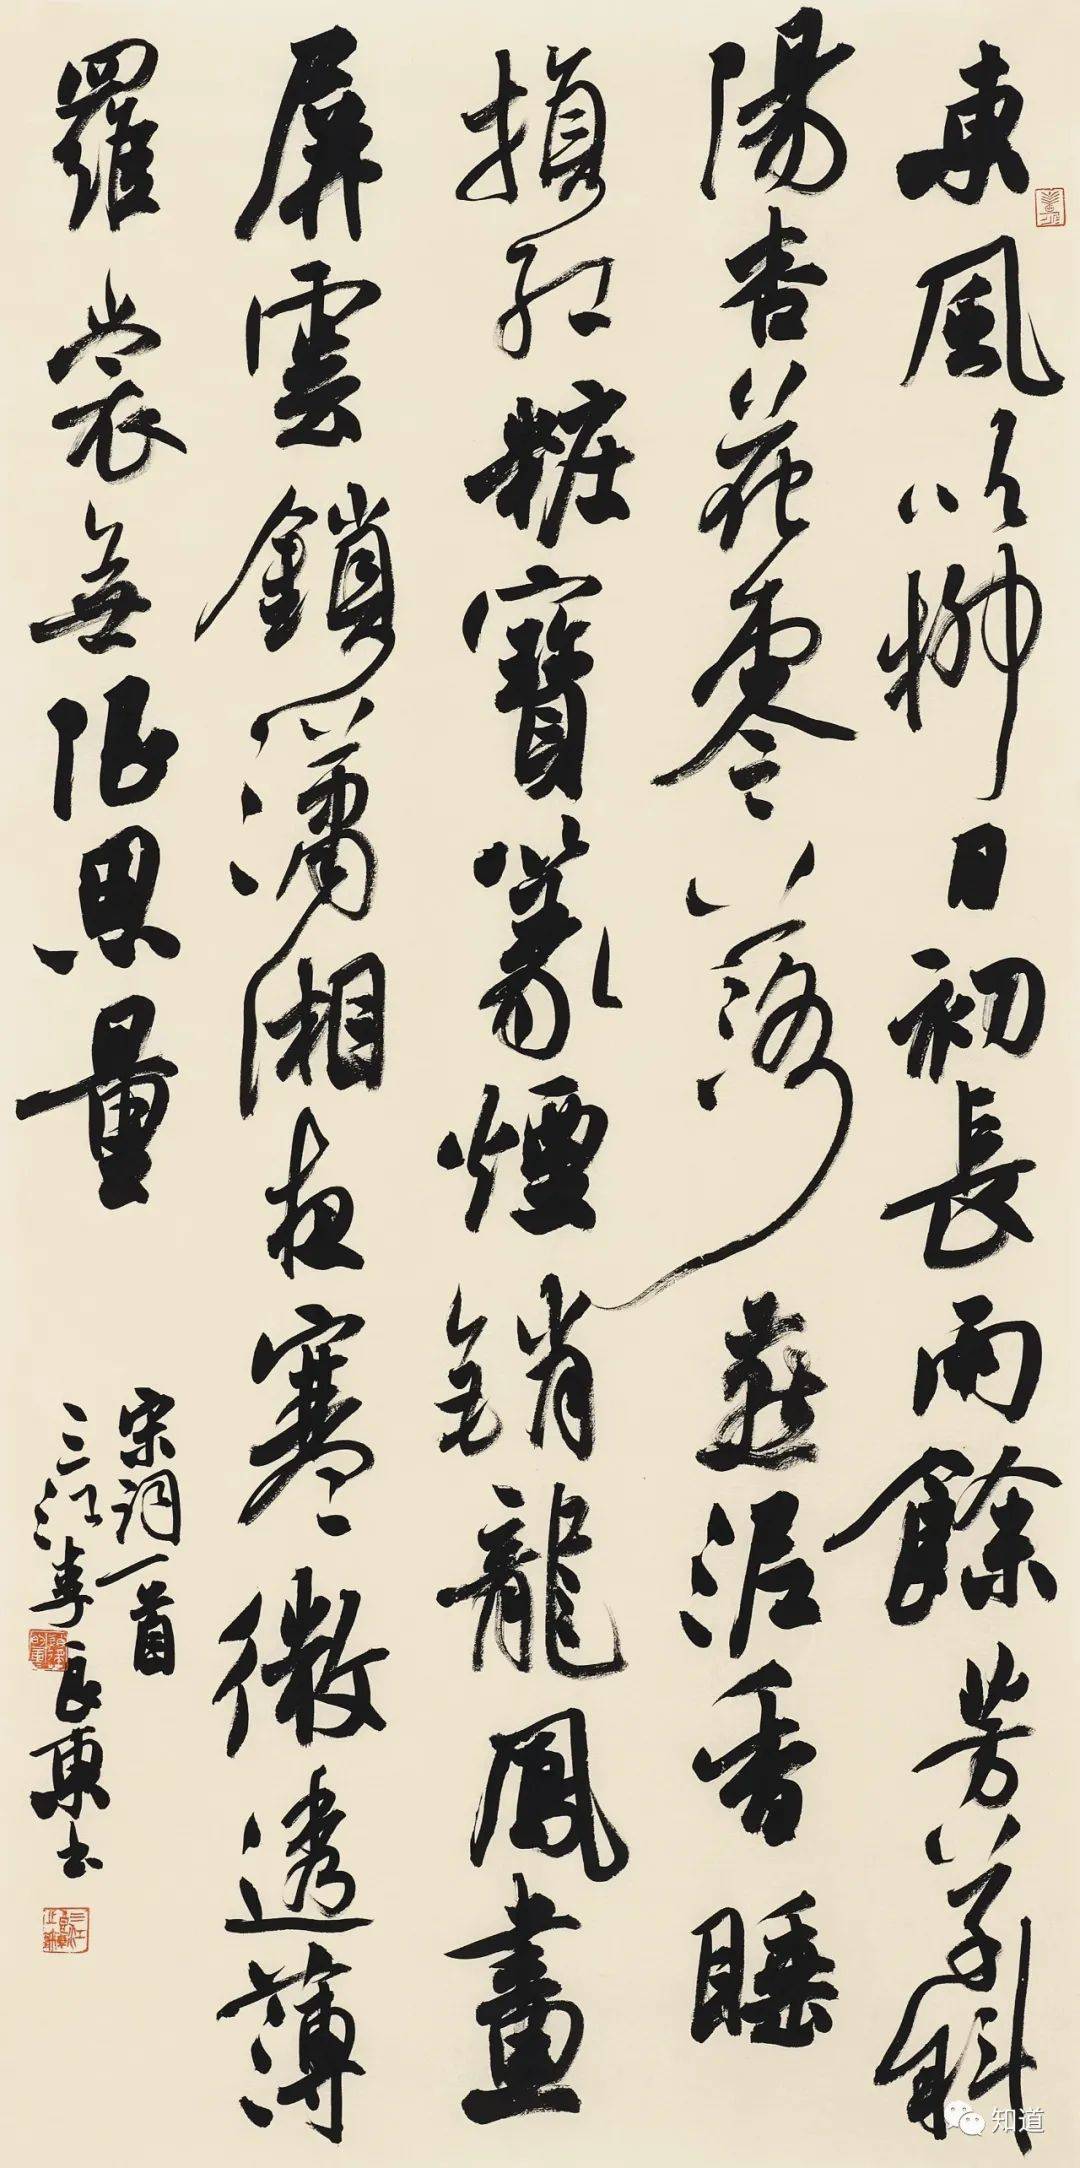 東風吹柳日初長雨餘芳草斜
陽杏花零落燕泥香睡
損紅粧寶篆煙銷龍鳳畫
屏雲鎖瀟湘夜寒微透薄
羅裳無限思量
宋詞一首
三江李良東书
知道